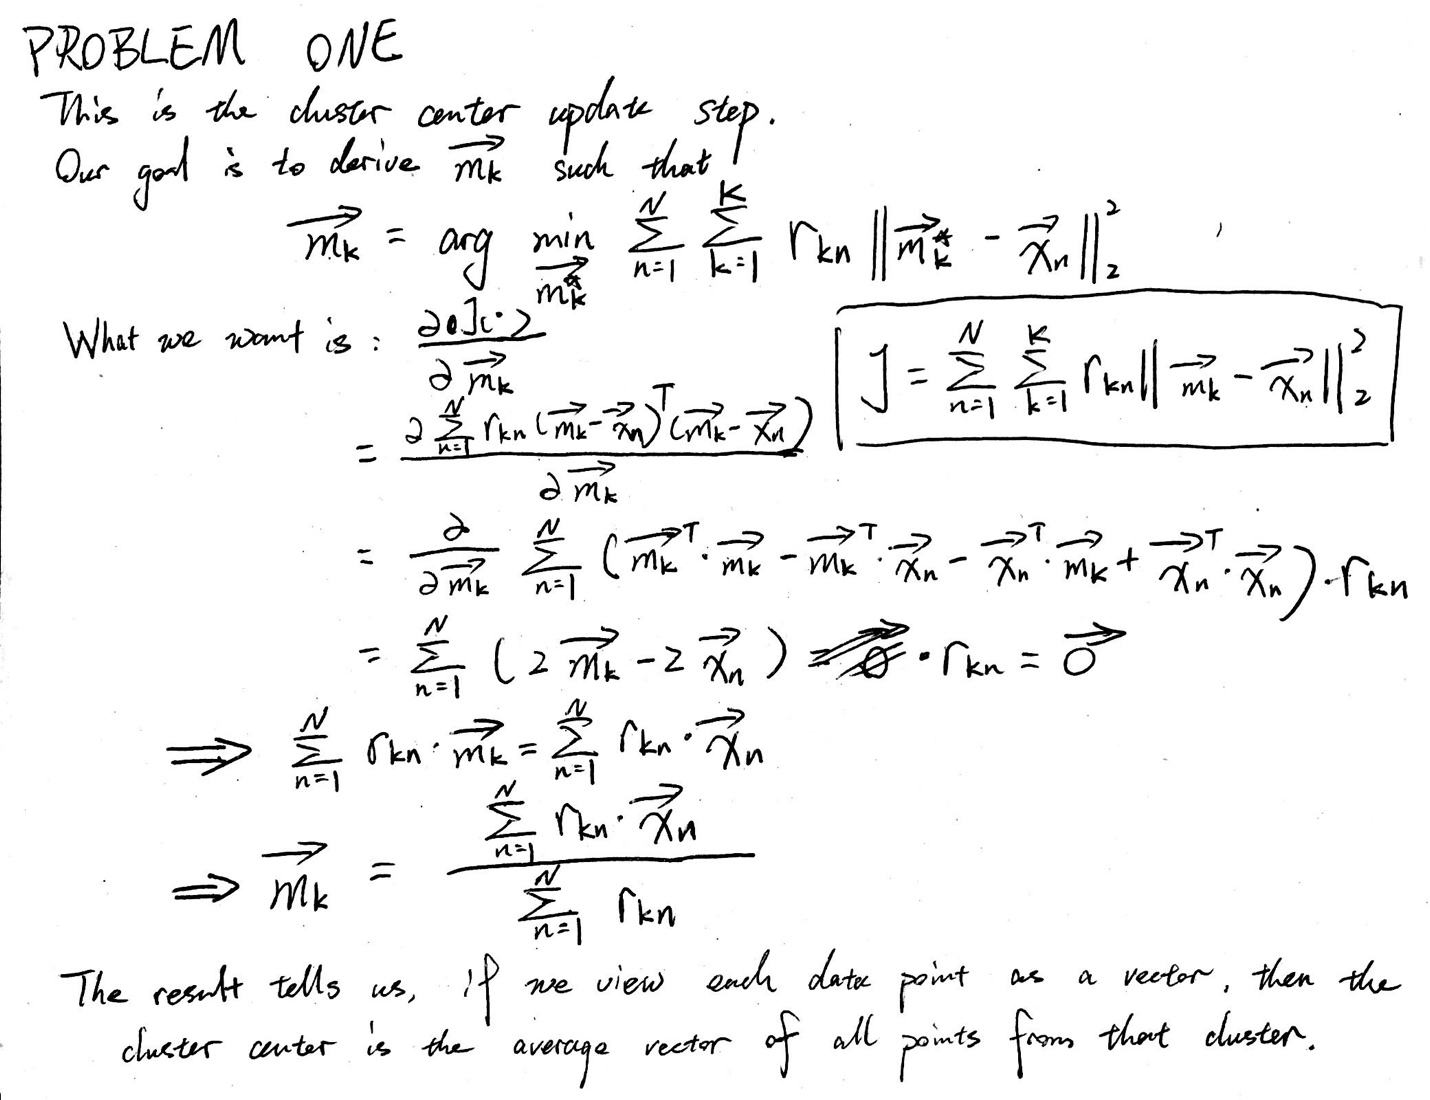 PROBLEM ONE
This is the cluster center update step.
Our goal is to derive $\overrightarrow{m_k}$ such that
$\overrightarrow{m_k} = \arg\min_{\overrightarrow{m_k^*}} \sum_{n=1}^{N} \sum_{k=1}^{K} r_{kn} \| \overrightarrow{m_k^*} - \overrightarrow{x_n} \|_2^2$
What we want is : $\frac{\partial J(\cdot)}{\partial \overrightarrow{m_k}}$
$J = \sum_{n=1}^{N} \sum_{k=1}^{K} r_{kn} \| \overrightarrow{m_k} - \overrightarrow{x_n} \|_2^2$
$= \frac{\partial \sum_{n=1}^{N} r_{kn} (\overrightarrow{m_k} - \overrightarrow{x_n})^T (\overrightarrow{m_k} - \overrightarrow{x_n})}{\partial \overrightarrow{m_k}}$
$= \frac{\partial}{\partial \overrightarrow{m_k}} \sum_{n=1}^{N} (\overrightarrow{m_k}^T \cdot \overrightarrow{m_k} - \overrightarrow{m_k}^T \cdot \overrightarrow{x_n} - \overrightarrow{x_n}^T \cdot \overrightarrow{m_k} + \overrightarrow{x_n}^T \cdot \overrightarrow{x_n}) \cdot r_{kn}$
$= \sum_{n=1}^{N} (2 \overrightarrow{m_k} - 2 \overrightarrow{x_n}) \cdot r_{kn} = \overrightarrow{0}$
$\Rightarrow \sum_{n=1}^{N} r_{kn} \cdot \overrightarrow{m_k} = \sum_{n=1}^{N} r_{kn} \cdot \overrightarrow{x_n}$
$\Rightarrow \overrightarrow{m_k} = \frac{\sum_{n=1}^{N} r_{kn} \cdot \overrightarrow{x_n}}{\sum_{n=1}^{N} r_{kn}}$
The result tells us, if we view each data point as a vector, then the
cluster center is the average vector of all points from that cluster.